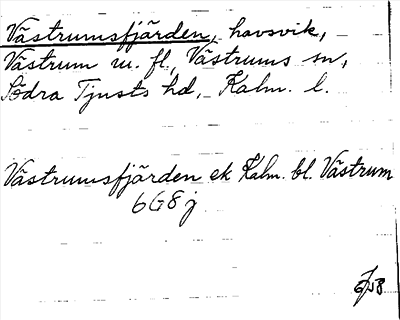 Västrumsfjärden, havsvik,
Västrum m. fl., Västrums sn,
Södra Tjusts hd, Kalm. l.
Västrumsfjärden ek Kalm. bl. Västrum
6G8j